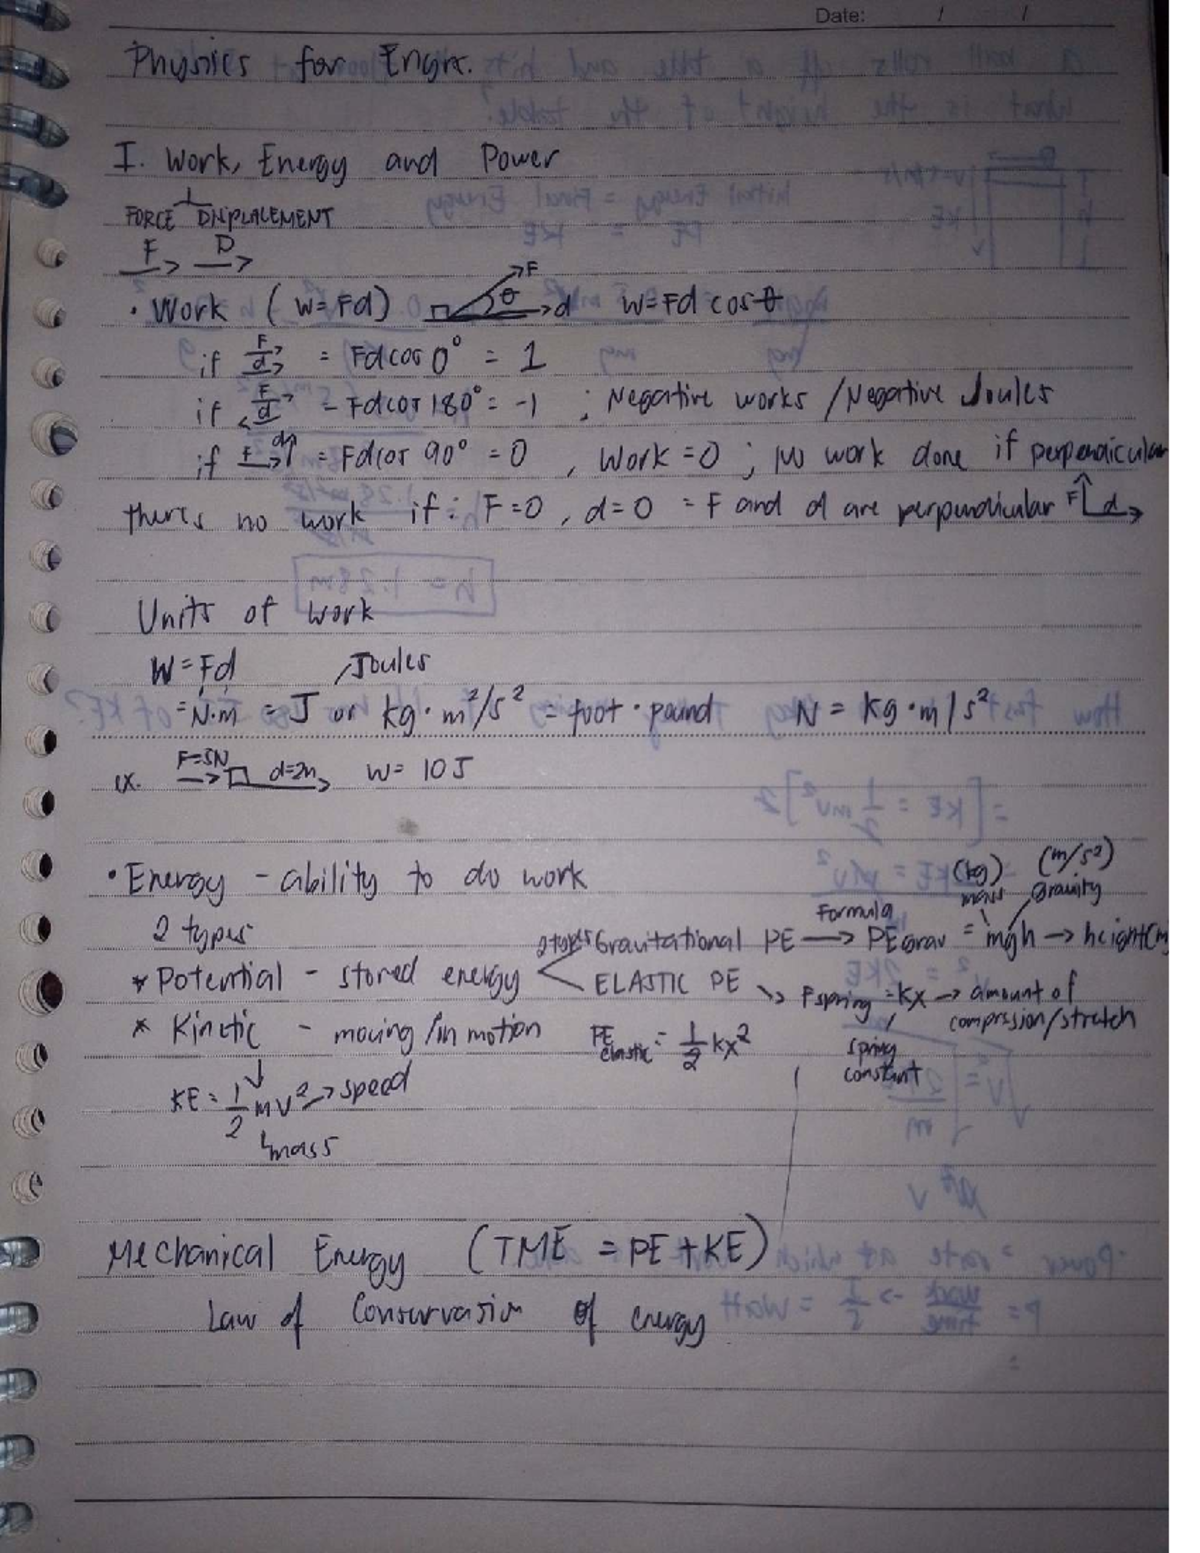 Date: / /
Physics for Engrs.
I. Work, Energy and Power
FORCE DISPLACEMENT
F D
• Work (W=Fd) F θ d W=Fd cos θ
if F d = Fd cos 0° = 1
if F d = Fd cos 180° = -1 ; Negative works / Negative Joules
if F d = Fd cos 90° = 0 , Work = 0 ; no work done if perpendicular
there's no work if : F=0 , d=0 = F and d are perpendicular F d
Units of work
W = Fd Joules
= N·m = J or kg·m²/s² = foot·pound N = kg·m/s²
ex. F=5N d=2m W= 10 J
• Energy - ability to do work (kg) (m/s²)
2 types Formula mass gravity
2 types Gravitational PE → PEgrav = mgh → height(m)
* Potential - stored energy ELASTIC PE → Fspring = kx → amount of compression/stretch
* Kinetic - moving/in motion PE elastic = 1/2 kx² spring constant
KE = 1/2 mv² → speed
mass
Mechanical Energy (TME = PE + KE)
Law of Conservasion of energy